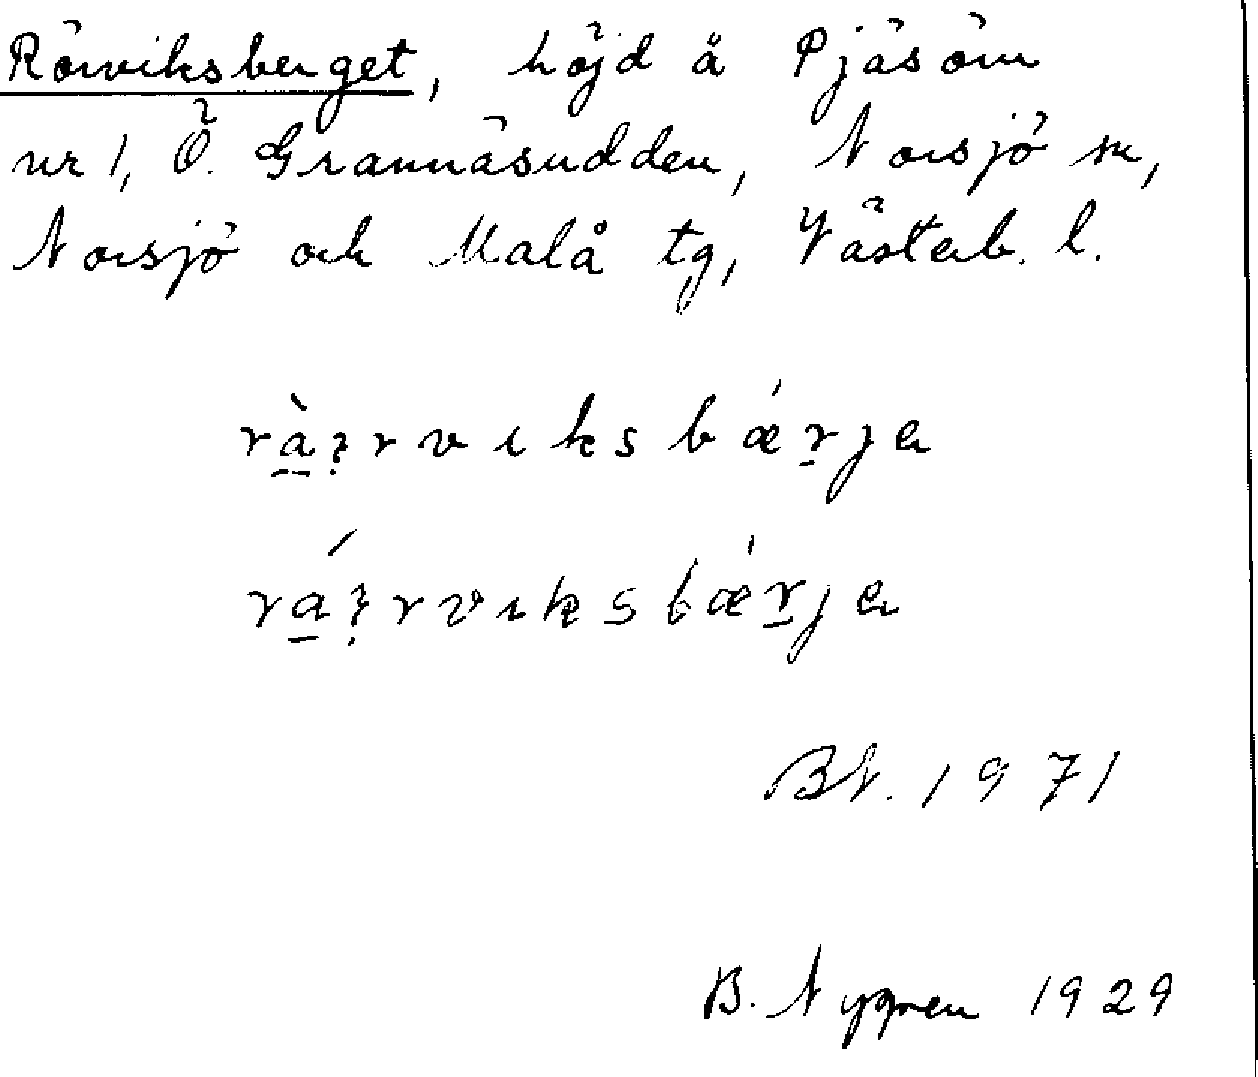 Rörviksberget, höjd å Pjäsörn
nr 1, Ö. Grannäsudden, Norsjö sn,
Norsjö och Malå tg, Västerb. l.
rviksbærja
rviksbærja
BN. 1971
B. Nygren 1929